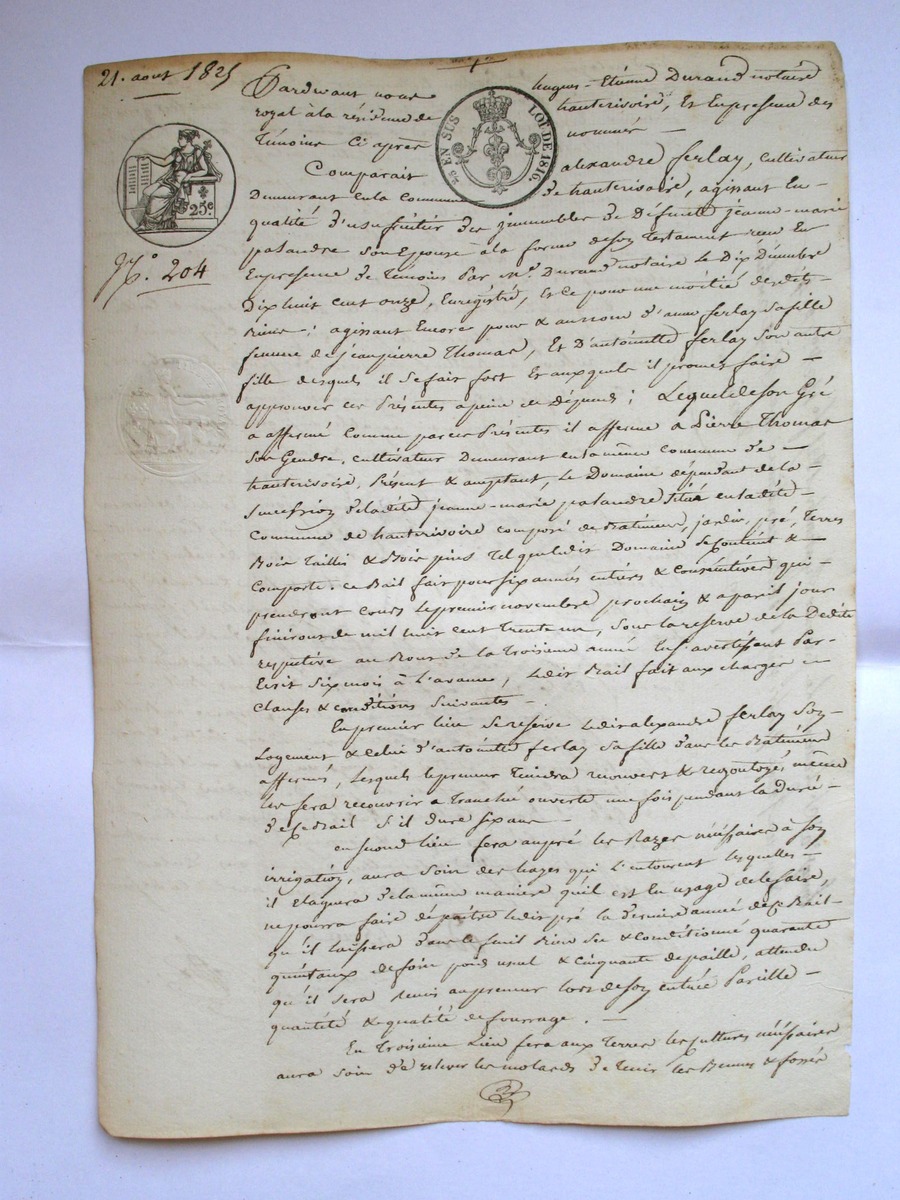 21. aout 1825
Pardevant nous hugues-Etienne Durand notaire
royal à la résidence de hauterivoire, Et En presence des
Témoins Ci après nommés —
25 EN SUS LOI DE 1816.
25c
No. 204
Comparait alexandre ferlay, cultivateur
Demeurant En la Commune De hauterivoire, agissant En
qualité d'usufruitier Des immeubles De Défunte jeanne-marie
palandre Son Epouse à la forme de Son Testament reçu En
En presence De Témoins Par Me. Durand notaire Le Dix Décembre
Dix huit cent onze, Enregistré, Et Ce pour une moitié desdits
biens; agissant Encore pour & au nom d'anne ferlay Sa fille
femme de jean pierre Thomas, Et D'antoinette ferlay Son autre
fille desquels il Se fait fort Et auxquels il promet faire —
approuver Ces Présentes a peine de Dépends; Lequel de Son Gré
a affermé Comme par ces Présentes il afferme a Pierre Thomas
Son Gendre, Cultivateur Demeurant en la même Commune De —
hauterivoire, Présent & acceptant, Le Domaine dépendant de la —
Succession de ladite jeanne-marie palandre Situé en ladite —
Commune de hauterivoire composé de Batiments, jardin, pré, Terres
Bois Taillis & Bois pins Tel que ledit Domaine Se Contient & —
Comporte. Ce Bail fait pour Six années entières & Consécutives qui —
prendront Cours Le premier novembre prochain & a pareil jour
finiront de mil huit cent Trente un, Sous la reserve de la Dédite
respective au Bout De la Troisieme année En S'avertissant Par
Ecrit Six mois à L'avance, Ledit Bail fait aux charges —
Clauses & Conditions Suivantes —
En premier lieu Se reserve Ledit alexandre ferlay Son
Logement & Celui d'antoinette ferlay Sa fille Dans les Batiments
affermés, Lesquels le preneur Tiendra recouverts & même
les fera recouvrir a Tranchée ouverte une fois pendant la Durée —
De Ce Bail S'il Dure Six ans —
En Second Lieu fera au pré les Razes nécessaires à Son
irrigation, aura Soin des hayes qui L'entourent lesquelles —
il Elaguera De la même maniere qu'il est En usage de le faire,
ne pourra faire dépaitre Ledit pré la Derniere année de Ce Bail —
qu'il laissera Dans Ce Bien Sec & Conditionné quarante
quintaux de foin poid usuel & Cinquante de paille, attendu
qu'il Sera remis au preneur Lors de Son Entrée Pareille —
quantité & qualité de fourrage. —
En Troisieme Lieu fera aux Terres les Cultures nécessaires
aura Soin De relever les molards De Tenir les & fossés